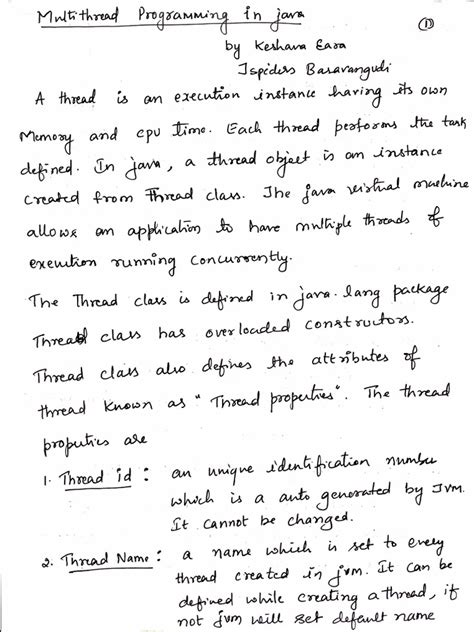 Multithread Programming in java
①
by Keshava Eara
Jspiders Basavangudi
A thread is an execution instance having its own
Memory and cpu time. Each thread performs the task
defined. In java, a thread object is an instance
created from Thread class. The java virtual machine
allows an application to have multiple threads of
execution running concurrently.
The Thread class is defined in java.lang package
Thread class has overloaded constructors.
Thread class also defines the attributes of
thread known as "Thread properties". The thread
properties are
1. Thread id : an unique identification number
which is a auto generated by Jvm.
It cannot be changed.
2. Thread Name : a name which is set to every
thread created in jvm. It can be
defined while creating a thread, if
not jvm will set default name